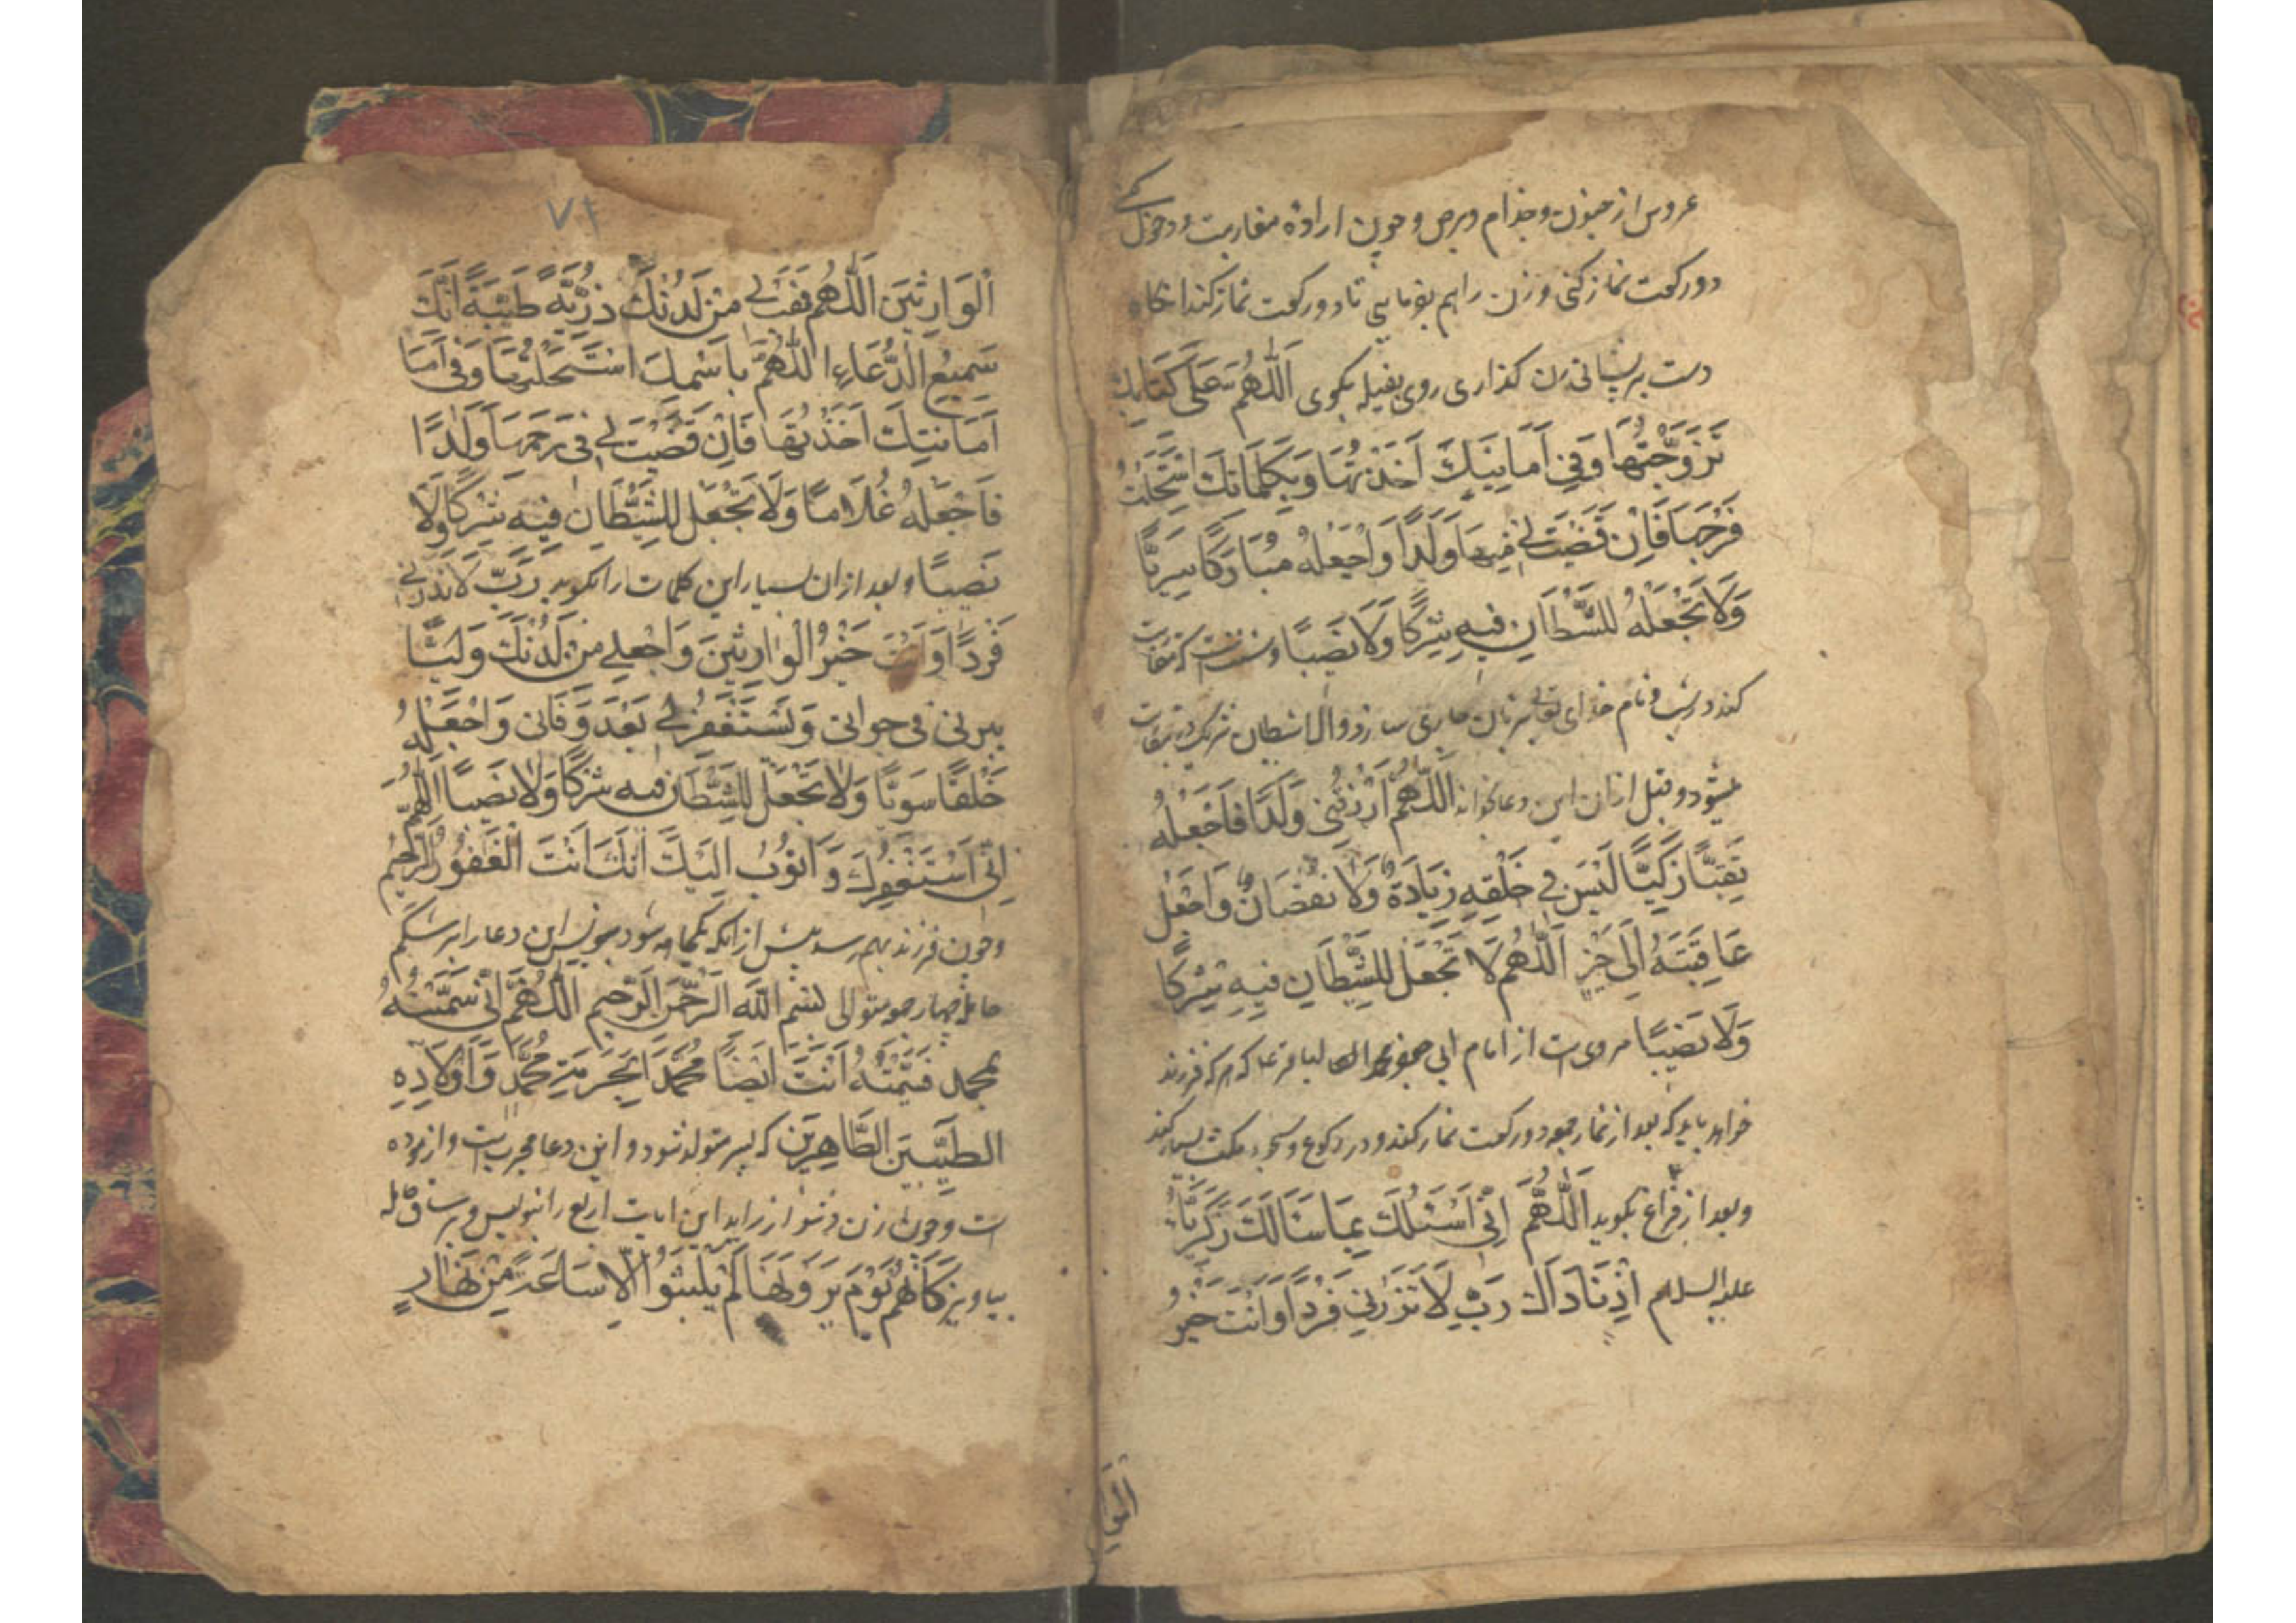 عروس از جنون و جذام و برص و چون اراده مقاربت و دخول کنی
دو رکعت نماز کنی و زن را هم بفرمایی تا دو رکعت نماز کند انکاه
دست بر پیشانی زن کذاری روی بقبله بکوی اَللّٰهُمَّ عَلَی کِتَابِکَ
تَزَوَّجْتُهَا وَفِی اَمَانَتِکَ اَخَذْتُهَا وَبِکَلِمَاتِکَ اسْتَحْلَلْتُ
فَرْجَهَا فَاِنْ قَضَیْتَ لِی فِیهَا وَلَدًا وَاجْعَلْهُ مُبَارَکًا سَرِیًّا
وَلَا تَجْعَلْهُ لِلشَّیْطَانِ فِیهِ شِرْکًا وَلَا نَصِیبًا و سنت است که مقاربت
کند در شب و نام خدای تعالی بر زبان جاری سازد و الا شیطان شریک در مقاربت
میشود و قبل از ان این دعا بخواند اَللّٰهُمَّ ارْزُقْنِی وَلَدًا فَاجْعَلْهُ
تَقِیًّا زَکِیًّا لَیْسَ فِی خَلْقِهِ زِیَادَةٌ وَلَا نُقْصَانٌ وَاجْعَلْ
عَاقِبَتَهُ اِلَی خَیْرٍ اَللّٰهُمَّ لَا تَجْعَلْ لِلشَّیْطَانِ فِیهِ شِرْکًا
وَلَا نَصِیبًا مروی است از امام ابی جعفر محمد الباقر ع که هر که فرزند
خواهد باید که بعد از نماز جمعه دو رکعت نماز کند و در رکوع و سجود مکث بسیار کند
و بعد از فراغ بکوید اَللّٰهُمَّ اِنِّی اَسْئَلُکَ بِمَا سَأَلَکَ زَکَرِیَّا
علیه السلام اِذْ نَادَاکَ رَبِّ لَا تَذَرْنِی فَرْدًا وَاَنْتَ خَیْرُ
الوا
۷۱
الْوَارِثِینَ اَللّٰهُمَّ فَهَبْ لِی مِنْ لَدُنْکَ ذُرِّیَّةً طَیِّبَةً اِنَّکَ
سَمِیعُ الدُّعَاءِ اَللّٰهُمَّ بِاسْمِکَ اسْتَحْلَلْتُهَا وَفِی اَمَا
اَمَانَتِکَ اَخَذْتُهَا فَاِنْ قَضَیْتَ لِی فِی رَحِمِهَا وَلَدًا
فَاجْعَلْهُ غُلَامًا وَلَا تَجْعَلْ لِلشَّیْطَانِ فِیهِ شِرْکًا وَلَا
نَصِیبًا و بعد از ان بسیار این کلمات را بکوید رَبِّ لَا تَذَرْنِی
فَرْدًا وَاَنْتَ خَیْرُ الْوَارِثِینَ وَاجْعَلْ لِی مِنْ لَدُنْکَ وَلِیًّا
یبرنی فی حیواتی وَیَسْتَغْفِرْ لِی بَعْدَ وَفَاتِی وَاجْعَلْهُ
خَلْقًا سَوِیًّا وَلَا تَجْعَلْ لِلشَّیْطَانِ فِیهِ شِرْکًا وَلَا نَصِیبًا اَللّٰهُمَّ
اِنِّی اَسْتَغْفِرُکَ وَاَتُوبُ اِلَیْکَ اِنَّکَ اَنْتَ الْغَفُورُ الرَّحِیمُ
و چون فرزند بهم رسد پیش از انکه یکماهه شود بنویس این دعا را بر شکم
حامله چهار جمعه متوالی بِسْمِ اللّٰهِ الرَّحْمٰنِ الرَّحِیمِ اَللّٰهُمَّ اِنِّی سَمَّیْتُهُ
بمحمد فَتَمِّمْهُ اَنْتَ اَیْضًا مُحَمَّدًا بِحُرْمَةِ مُحَمَّدٍ وَاَوْلَادِهِ
الطَّیِّبِینَ الطَّاهِرِینَ که پسر متولد شود و این دعا مجرب است و ازموده
است و چون زن دشوار زاید این ایات اربع را بنویس و بر ساق حامله
بیاویز کَاَنَّهُمْ یَوْمَ یَرَوْنَهَا لَمْ یَلْبَثُوا اِلَّا سَاعَةً مِنْ نَهَارٍ